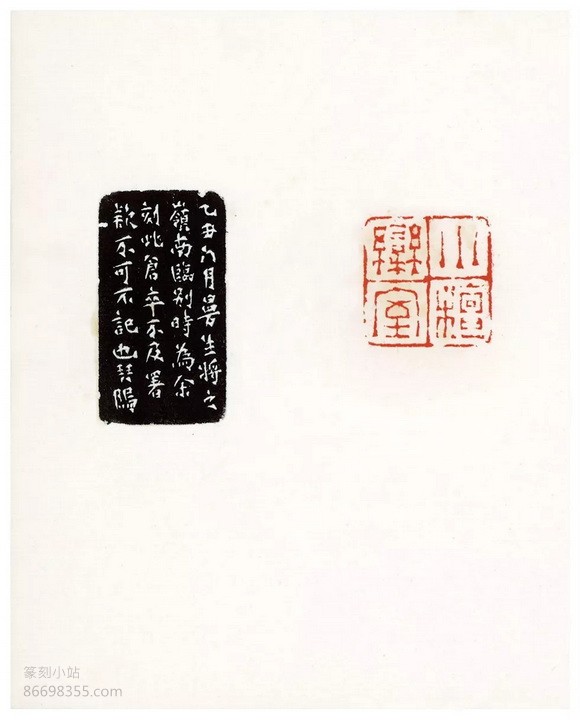 小檀
欒室
乙丑八月曼生將之
嶺南臨别時為余
刻此倉卒不及署
款不可不記也琴隖
篆刻小站
86698355.com